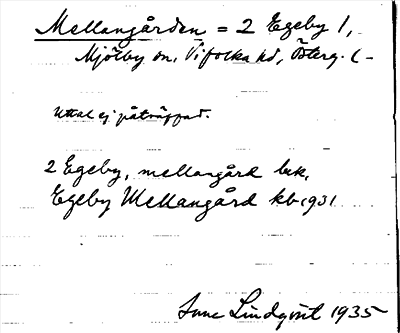 Mellangården = 2 Egeby 1,
Mjölby sn, Vifolka hd, Österg. (-
Uttal ej påträffad.
2 Egeby, mellangård bek.
Egeby Mellangård kb 1931
Sune Lindqvist 1935